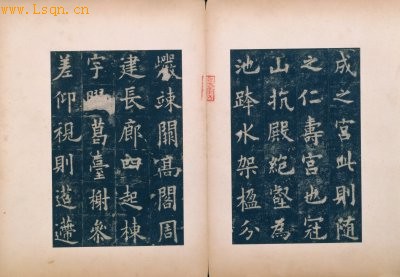 www.Lsqn.cn
成之宮此則隨
之仁壽宮也冠
山抗殿絕壑為
池跨水架楹分
巖竦闕高閣周
建長廊四起棟
宇葛臺榭參
差仰視則迢遰